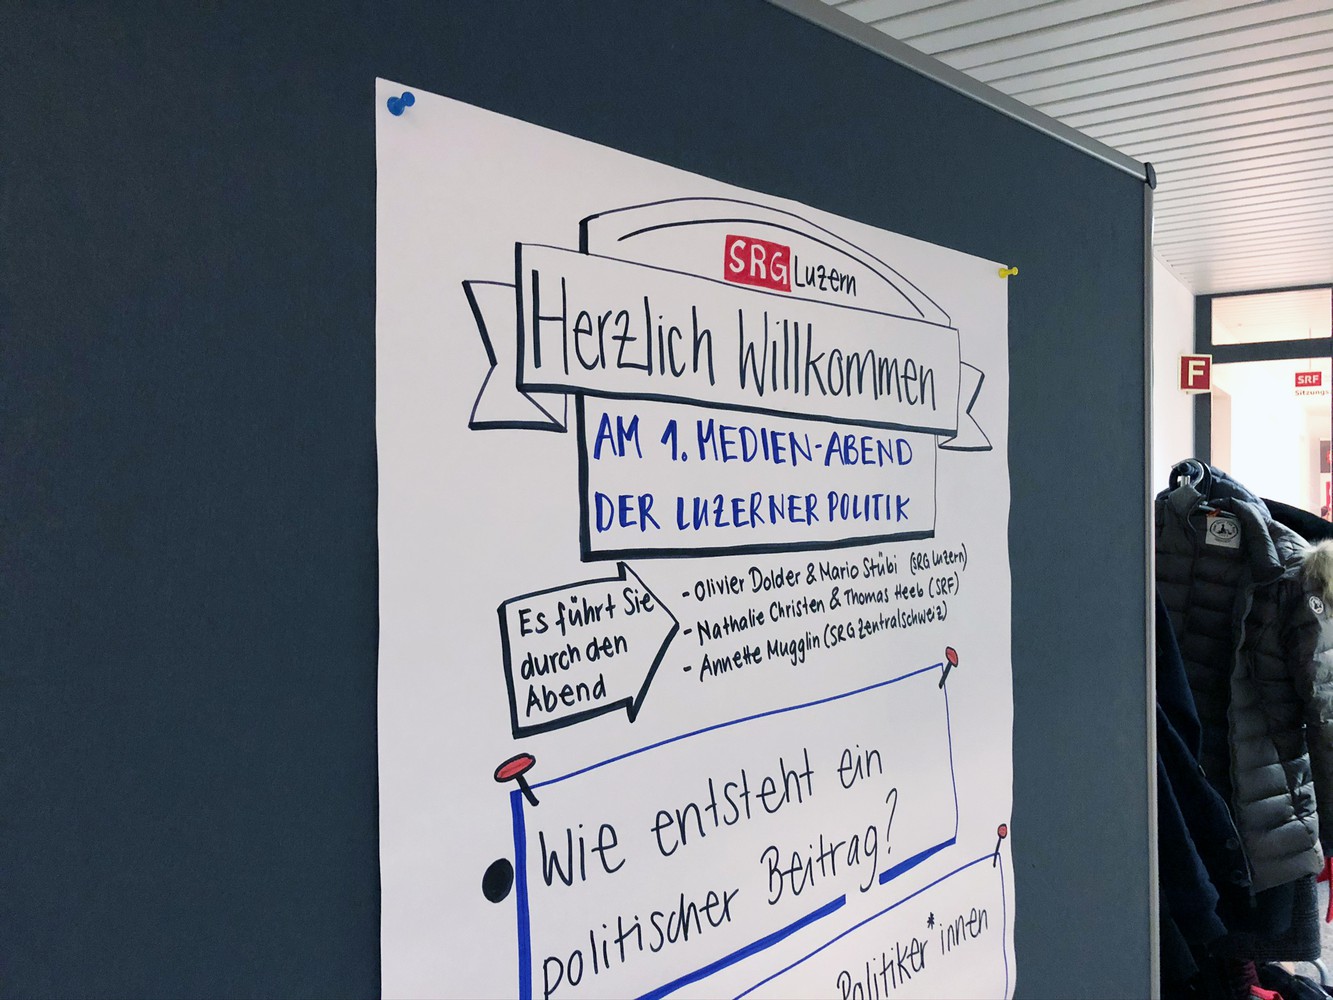 SRG Luzern
Herzlich Willkommen
AM 1. MEDIEN-ABEND
DER LUZERNER POLITIK
Es führt Sie
durch den
Abend
- Olivier Dolder & Mario Stübi (SRG Luzern)
- Nathalie Christen & Thomas Heeb (SRF)
- Annette Mugglin (SRG Zentralschweiz)
Wie entsteht ein
politischer Beitrag?
Politiker*innen
F
SRF
Sitzungs